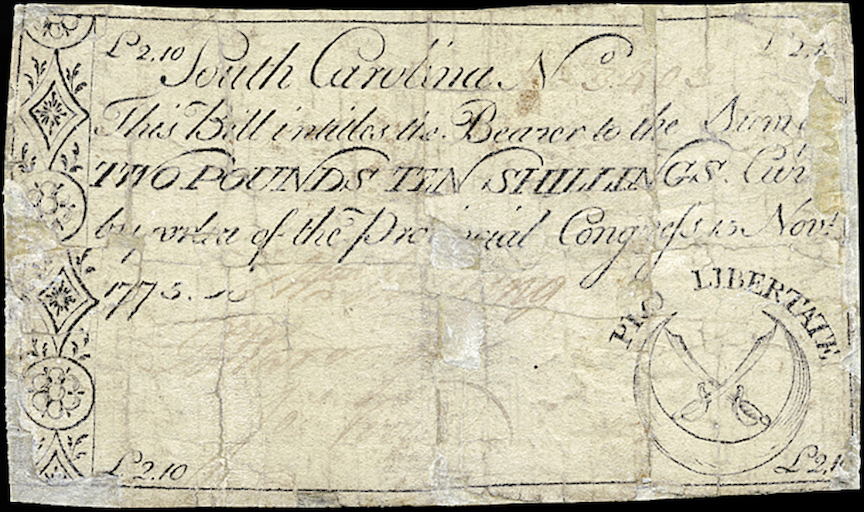 £2.10 South Carolina No
£2.1
This Bill intitles the Bearer to the Sum
TWO POUNDS TEN SHILLINGS. Cur
by order of the Provincial Congress 15 Novr.
1775.
PRO LIBERTATE
£2.10
£2.1